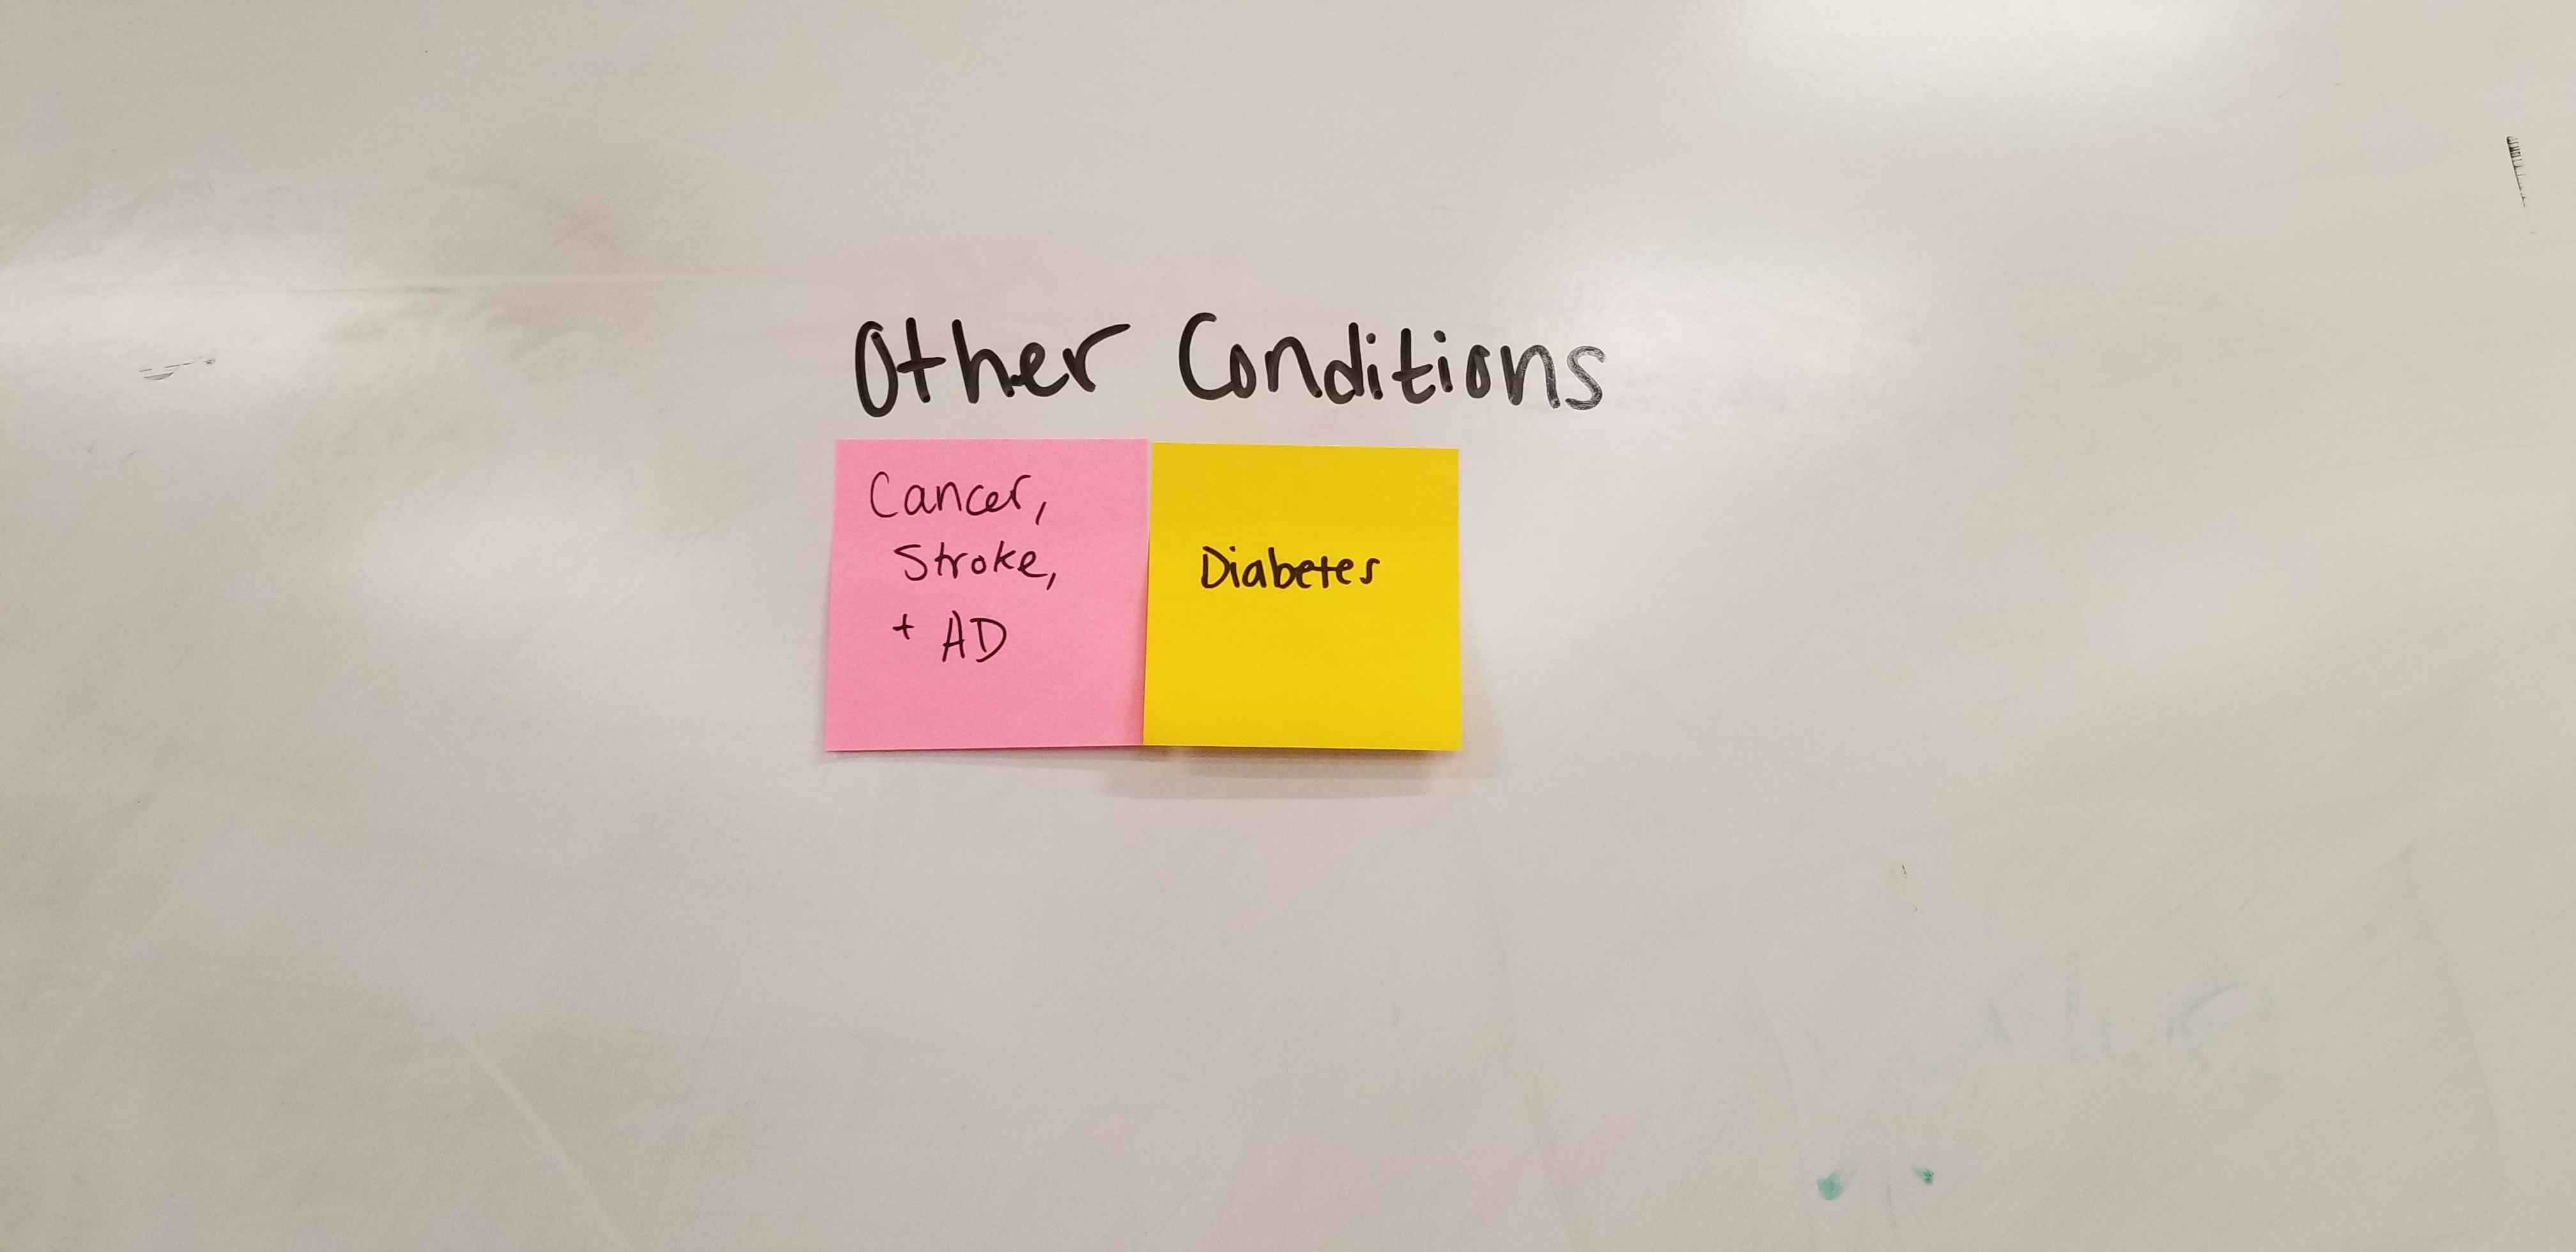 Other Conditions
Cancer,
Stroke,
+ AD
Diabetes